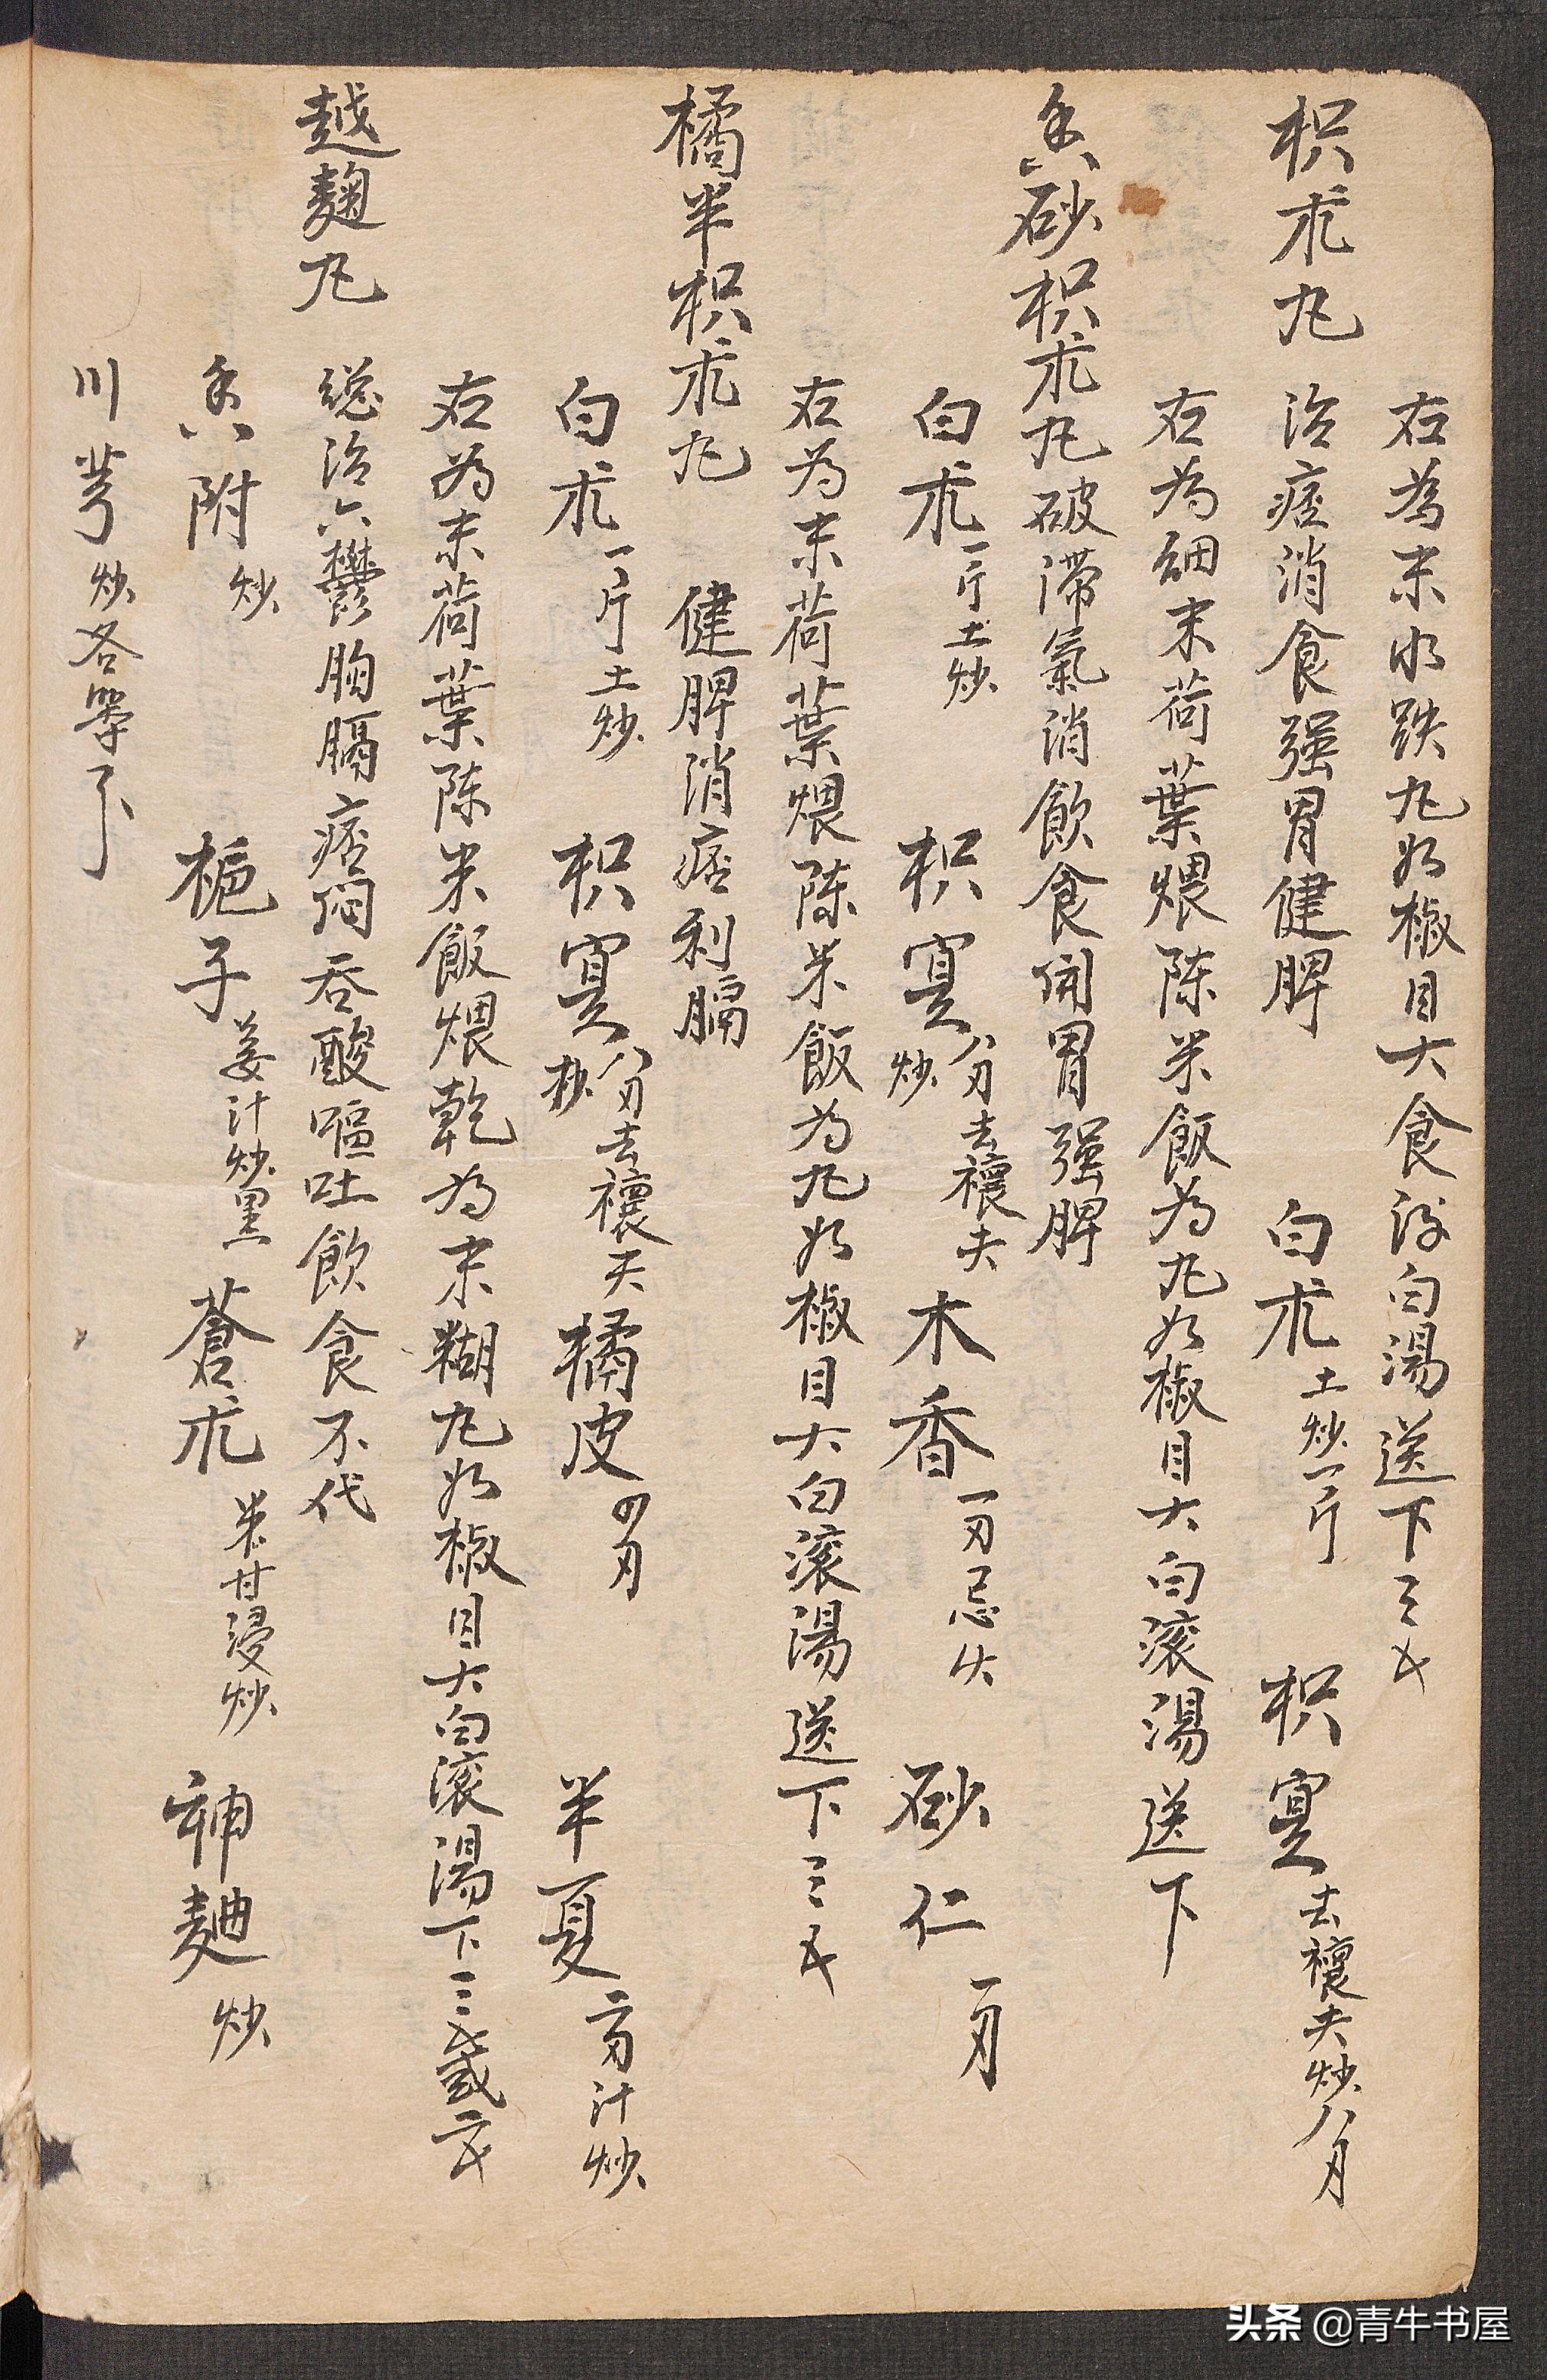 右為末水跌丸如椒目大食後白湯送下三
枳朮丸 治痞消食强胃健脾 白朮土炒一斤 枳實去穰夫炒八
右為細末荷葉煨陳米飯為丸如椒目大白滚湯送下
香砂枳朮丸破滯氣消飲食開胃强脾
白朮一斤土炒 枳實八去穰夫炒 木香一忌火 砂仁一
右為末荷葉煨陳米飯為丸如椒目大白滚湯送下三
橘半枳朮丸 健脾消痞利膈
白朮一斤土炒 枳實八去穰夫炒 橘皮四 半夏二汁炒
右為末荷葉陳米飯煨乾為末糊丸如椒目大白滚湯下三或二
越麯丸 總治六欝胸膈痞悶吞酸嘔吐飲食不代
香附炒 梔子姜汁炒黑 蒼朮米甘浸炒 神麯炒
川芎炒各等下
头条 @青牛书屋